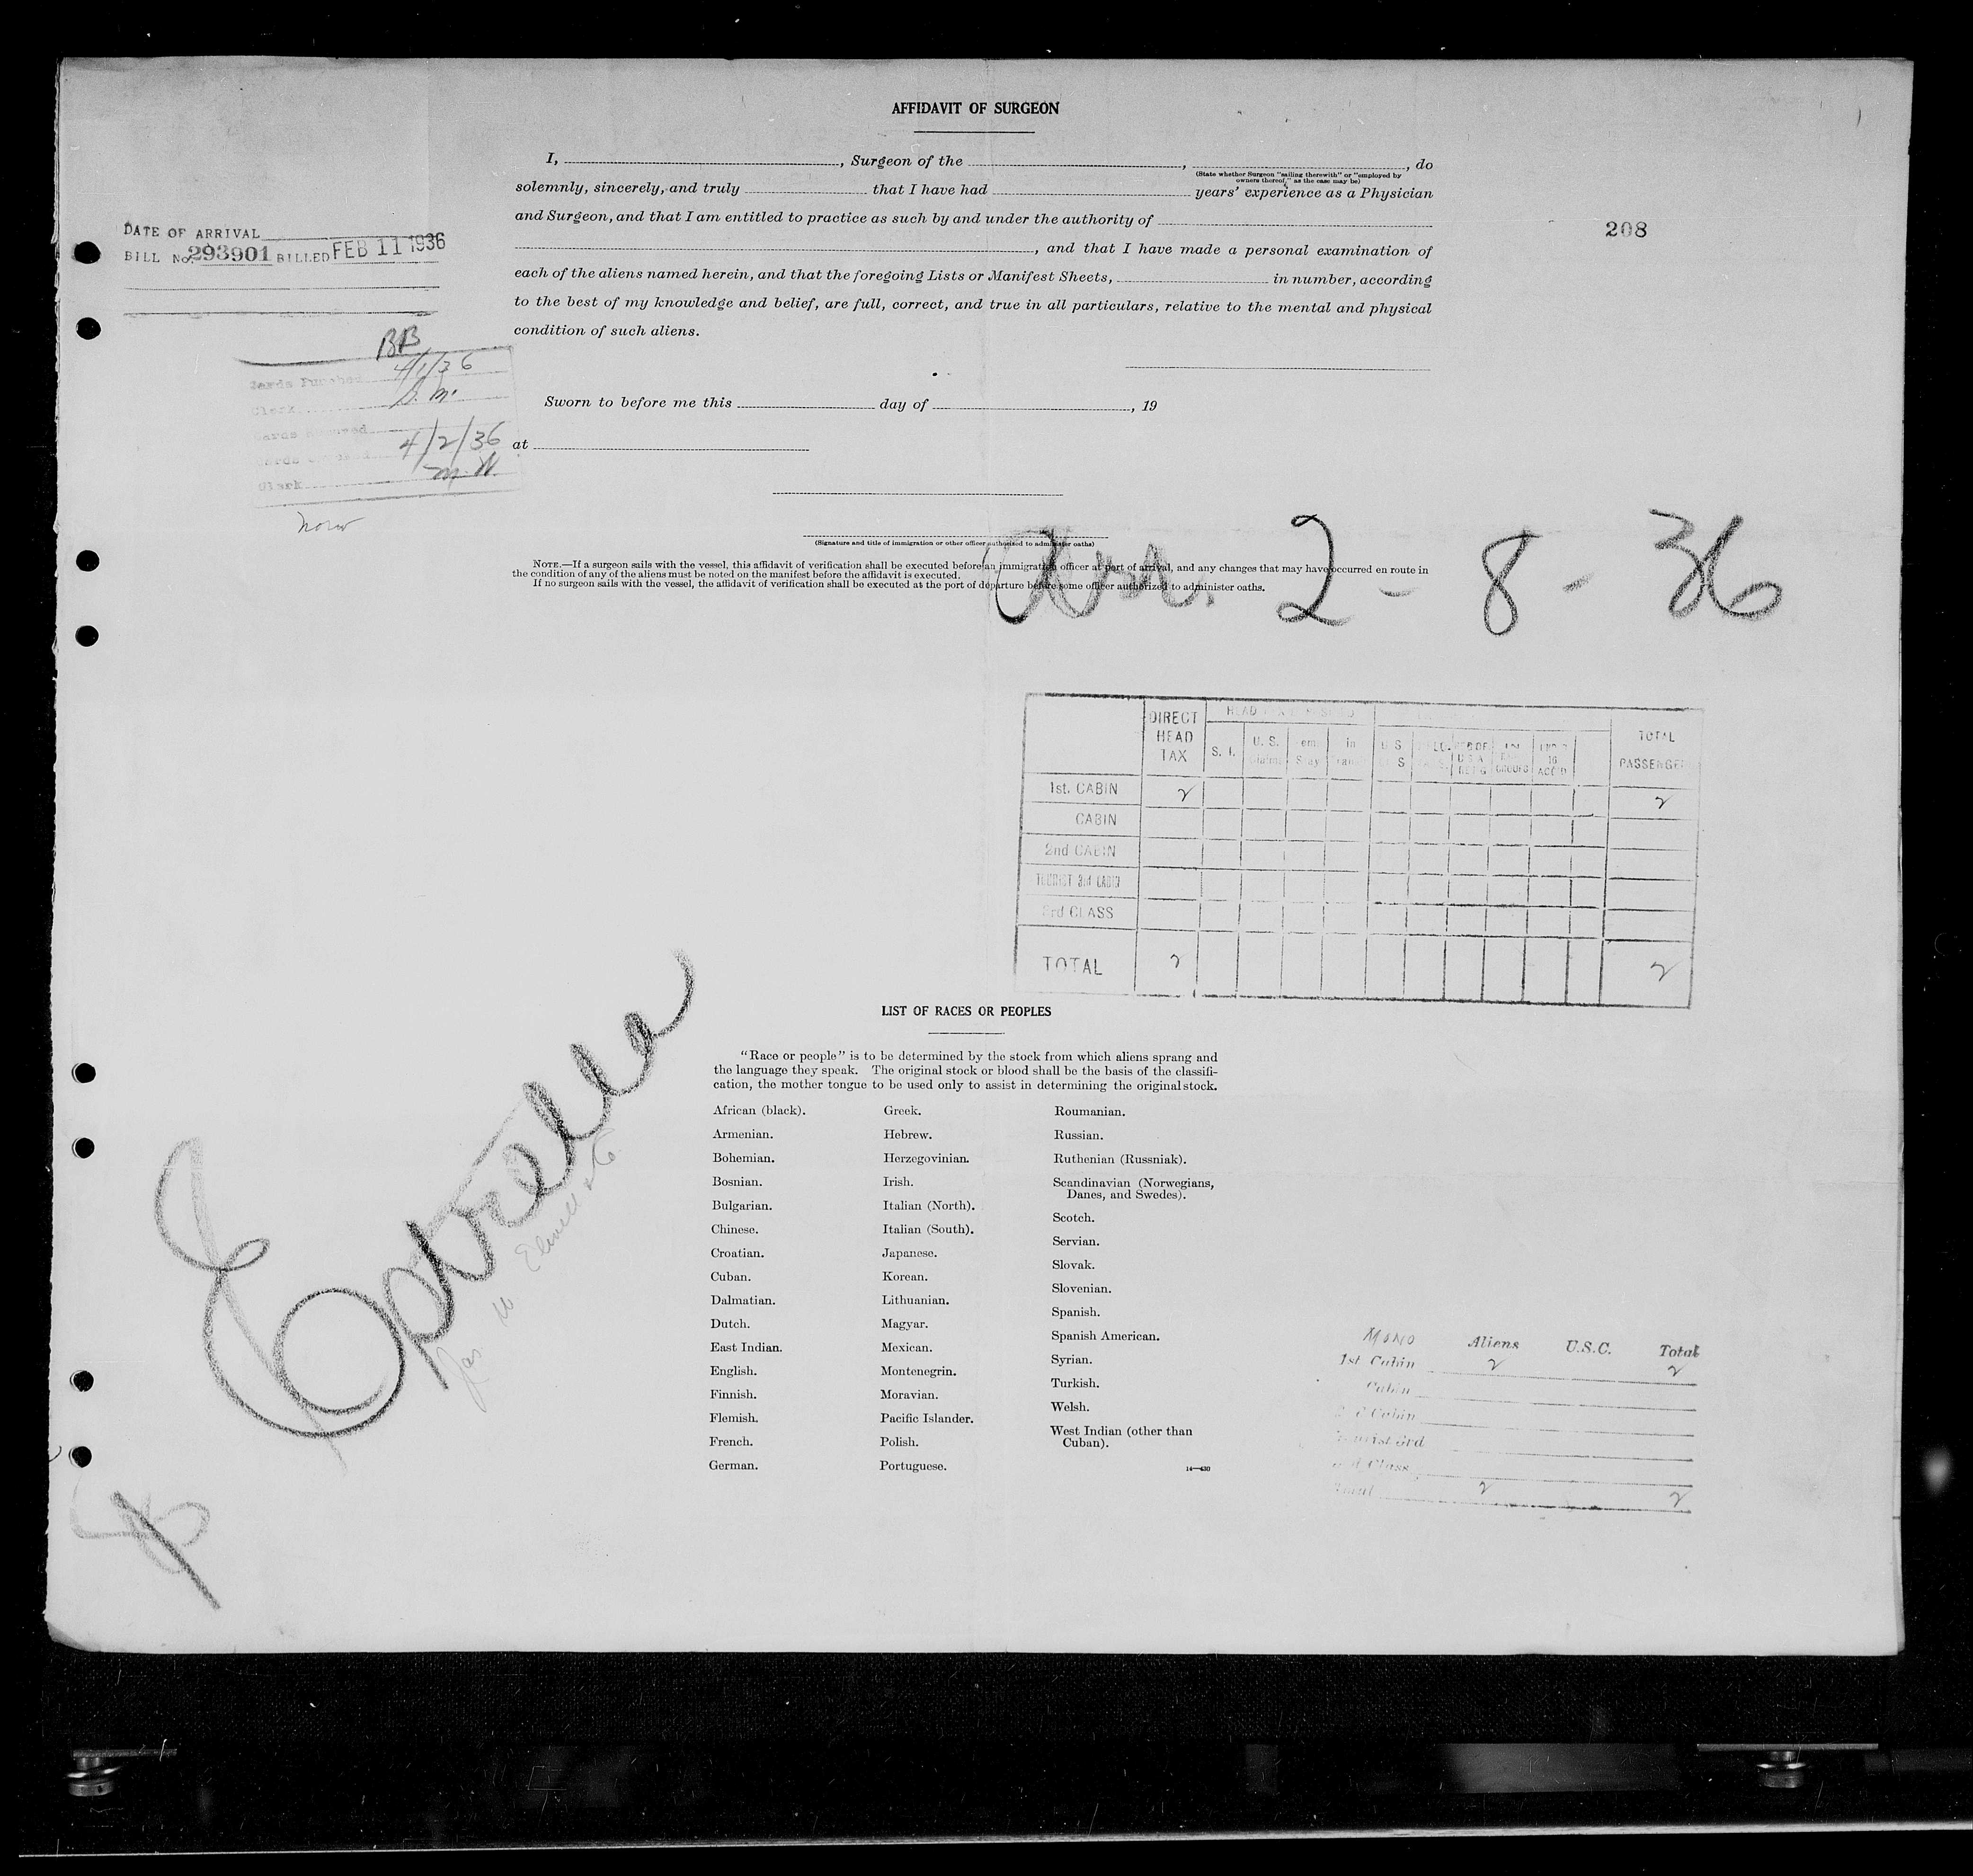 AFFIDAVIT OF SURGEON
I, , Surgeon of the , , do
(State whether Surgeon "sailing therewith" or "employed by
owners thereof," as the case may be)
solemnly, sincerely, and truly that I have had years' experience as a Physician
and Surgeon, and that I am entitled to practice as such by and under the authority of
, and that I have made a personal examination of
each of the aliens named herein, and that the foregoing Lists or Manifest Sheets, in number, according
to the best of my knowledge and belief, are full, correct, and true in all particulars, relative to the mental and physical
condition of such aliens.
208
DATE OF ARRIVAL
BILL No. 293901 BILLED FEB 11 1936
BB
4/1/36
Clerk
4/2/36
Clerk M. W.
Sworn to before me this day of , 19
at
(Signature and title of immigration or other officer authorized to administer oaths)
NOTE.—If a surgeon sails with the vessel, this affidavit of verification shall be executed before an immigration officer at port of arrival, and any changes that may have occurred en route in
the condition of any of the aliens must be noted on the manifest before the affidavit is executed.
If no surgeon sails with the vessel, the affidavit of verification shall be executed at the port of departure before some officer authorized to administer oaths.
2 - 8 - 36
DIRECT HEAD TAX
S. I.
U. S.
TOTAL PASSENGER
1st. CABIN 2 2
CABIN
2nd CABIN
TOURIST 3rd CABIN
3rd CLASS
TOTAL 2 2
LIST OF RACES OR PEOPLES
"Race or people" is to be determined by the stock from which aliens sprang and
the language they speak. The original stock or blood shall be the basis of the classifi-
cation, the mother tongue to be used only to assist in determining the original stock.
African (black).
Armenian.
Bohemian.
Bosnian.
Bulgarian.
Chinese.
Croatian.
Cuban.
Dalmatian.
Dutch.
East Indian.
English.
Finnish.
Flemish.
French.
German.
Greek.
Hebrew.
Herzegovinian.
Irish.
Italian (North).
Italian (South).
Japanese.
Korean.
Lithuanian.
Magyar.
Mexican.
Montenegrin.
Moravian.
Pacific Islander.
Polish.
Portuguese.
Roumanian.
Russian.
Ruthenian (Russniak).
Scandinavian (Norwegians,
Danes, and Swedes).
Scotch.
Servian.
Slovak.
Slovenian.
Spanish.
Spanish American.
Syrian.
Turkish.
Welsh.
West Indian (other than
Cuban).
14—430
Aliens U.S.C. Total
1st Cabin 2 2
Cabin
Cabin
Tourist 3rd
Class
Total 2 2